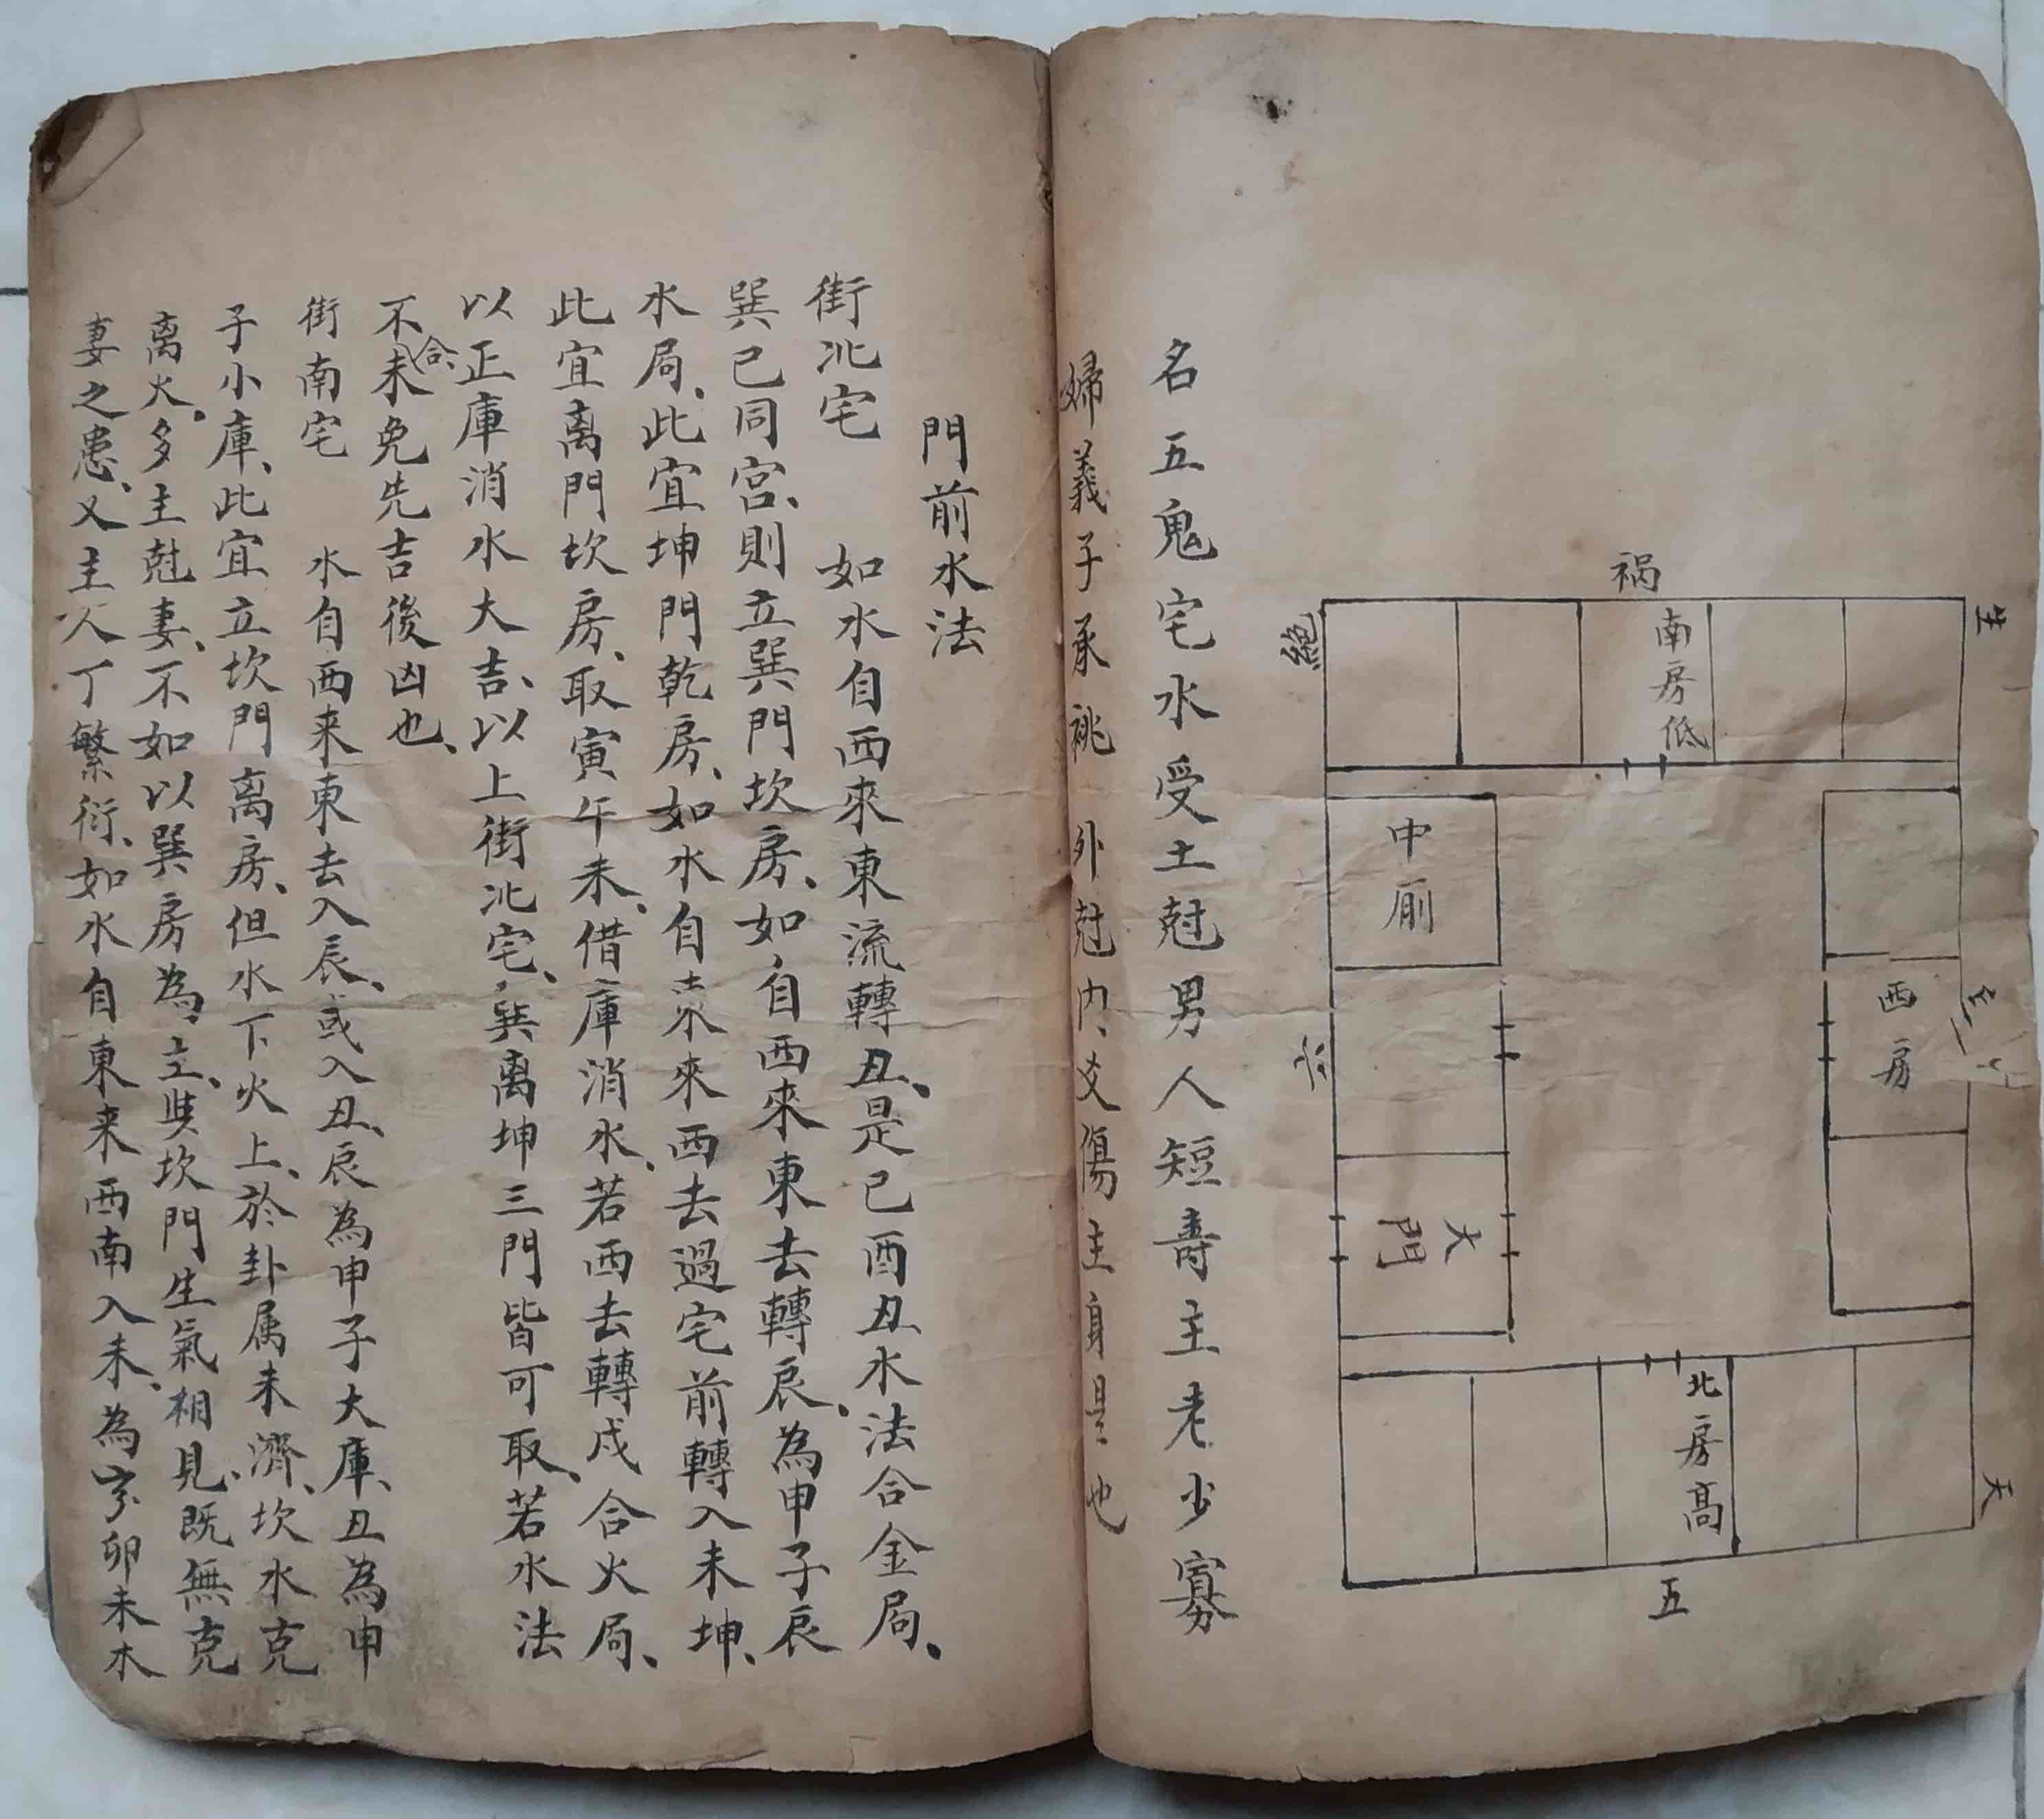 祸
生
絶
南房低
中厠
西房
六
大門
北房高
天
五
名五鬼宅水受土尅男人短壽主老少寡
婦義子承祧 外尅内爻傷主身是也
門前水法
街北宅 如水自西來東流轉丑、是巳酉丑水法合金局、
巽巳同宫、則立巽門坎房、如自西來東去轉辰、為申子辰
水局、此宜坤門乾房、如水自東來西去過宅前轉入未坤、
此宜离門坎房、取寅午未、借庫消水、若西去轉戌合火局、
以正庫消水大吉、以上街北宅、巽离坤三門皆可取、若水法
不合、未免先吉後凶也、
街南宅 水自西来東去入辰、或入丑、辰為申子大庫、丑為申
子小庫、此宜立坎門离房、但水下火上、於卦属未濟、坎水克
离火。多主尅妻、不如以巽房為主、與坎門生氣相見、既無克
妻之患、又主人丁繁衍、如水自東来西南入未、為亥卯未木